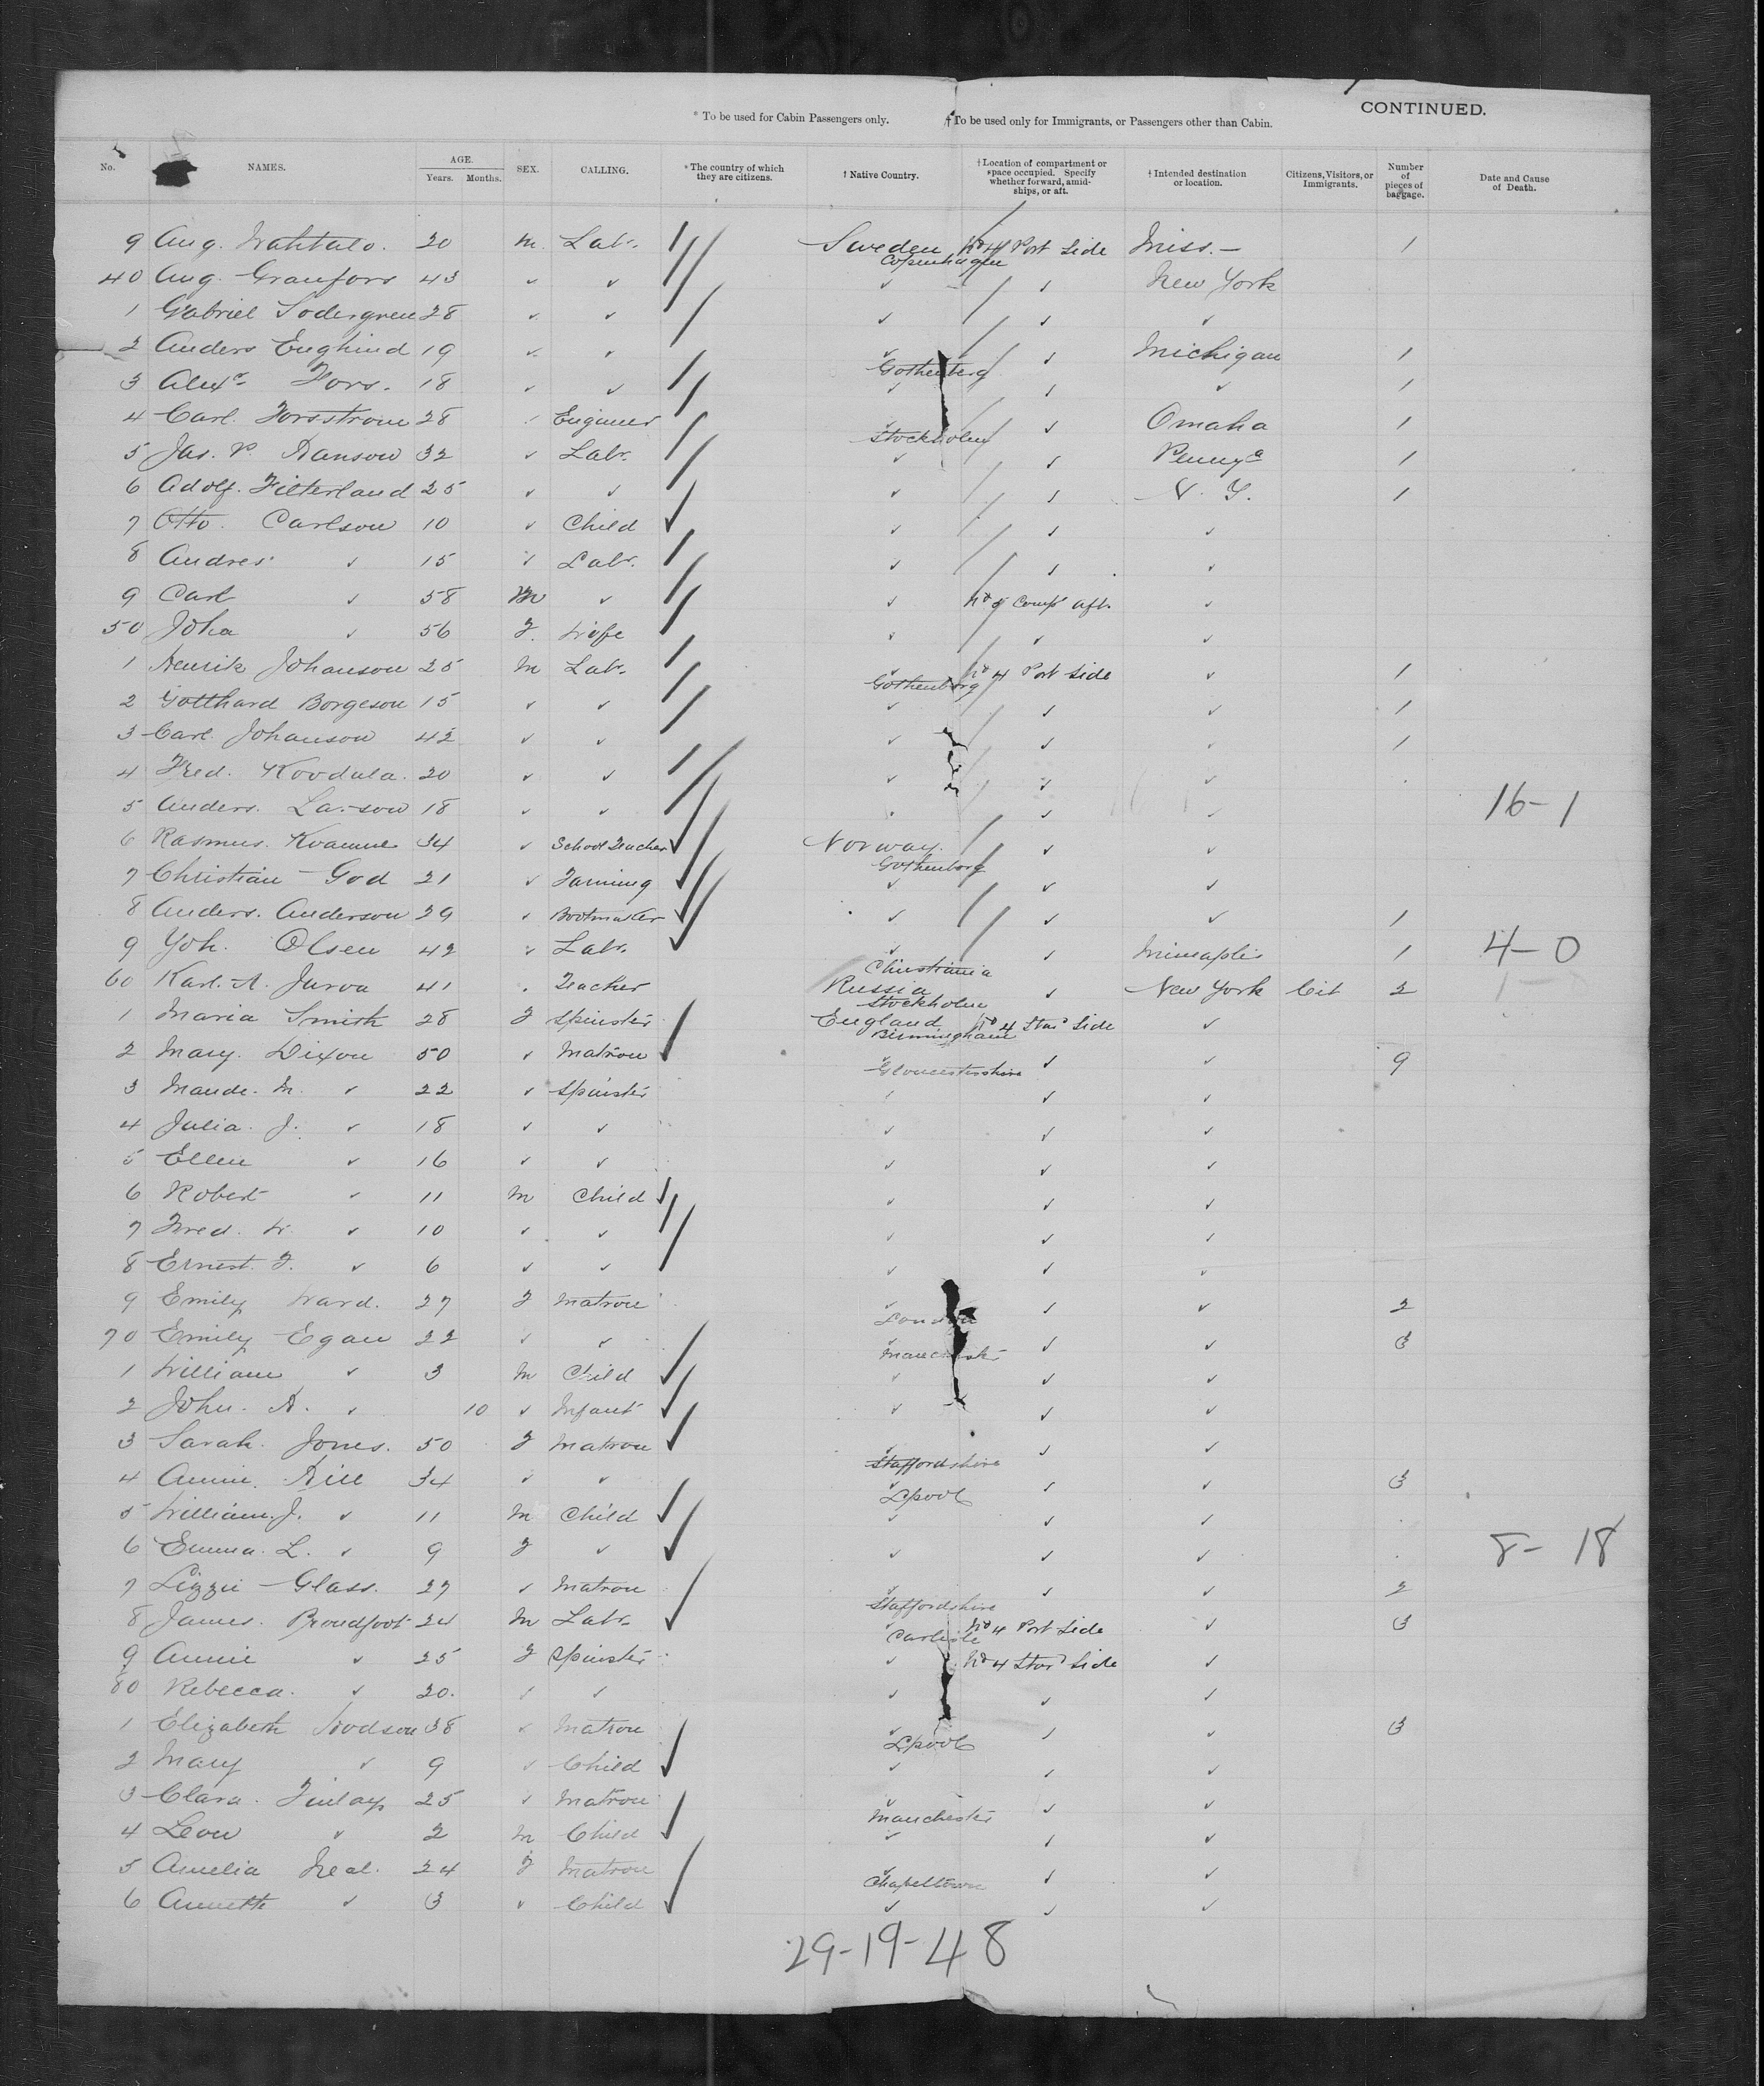 CONTINUED.
* To be used for Cabin Passengers only. † To be used only for Immigrants, or Passengers other than Cabin.
No. NAMES. AGE. Years. Months. SEX. CALLING. * The country of which they are citizens. † Native Country. † Location of compartment or space occupied. Specify whether forward, amidships, or aft. † Intended destination or location. Citizens, Visitors, or Immigrants. Number of pieces of baggage. Date and Cause of Death.
9 Aug. 20 M. Labr. Sweden Copenhagen No 4 Port Side Miss. — 1
40 Aug. Granfors 43 ✓ ✓ ✓ ✓ New York
1 Gabriel Sodergren 28 ✓ ✓ ✓ ✓ ✓
2 Anders 19 ✓ ✓ ✓ Gothenberg ✓ Michigan 1
3 Alexr. Fors. 18 ✓ ✓ ✓ ✓ ✓ 1
4 Carl. Forsstrom 28 ✓ Engineer ✓ Stockholm ✓ Omaha 1
5 Jas. P. Hanson 32 ✓ Labr. ✓ ✓ Pennya 1
6 Adolf. Fitterland 25 ✓ ✓ ✓ ✓ N. Y. 1
7 Otto. Carlson 10 ✓ Child ✓ ✓ ✓
8 Andres ✓ 15 ✓ Labr. ✓ ✓ ✓
9 Carl ✓ 58 M ✓ ✓ Comp Aft. ✓
50 Joha ✓ 56 F. Wife ✓ ✓ ✓
1 Henrik Johanson 25 M Labr. ✓ Gothenborg No 4 Port Side ✓ 1
2 Gotthard Borgeson 15 ✓ ✓ ✓ ✓ ✓ 1
3 Carl. Johanson 42 ✓ ✓ ✓ ✓ ✓ 1
4 Fred. Koodula. 20 ✓ ✓ ✓ ✓ ✓
5 Anders. Larson 18 ✓ ✓ ✓ ✓ 16-1
6 Rasmus. Kvamme 34 ✓ School Teacher Norway. Gothenborg ✓ ✓
7 Christian God 21 ✓ Farming ✓ ✓ ✓
8 Anders. Anderson 29 ✓ Bootmaker ✓ ✓ ✓ 1
9 Joh. Olsen 42 ✓ Labr. ✓ Christiania ✓ Minneaplis 1 4-0
60 Karl. A. Jarva 41 ✓ Teacher Russia Stockholm ✓ New York Cit 2 1 -
1 Maria Smith 28 F Spinster England Birmingham No 4 Star Side ✓
2 Mary. Dixon 50 ✓ Matron ✓ Gloucestershire ✓ ✓ 9
3 Maude. M. ✓ 22 ✓ Spinster ✓ ✓ ✓
4 Julia. J. ✓ 18 ✓ ✓ ✓ ✓ ✓
5 Ellen ✓ 16 ✓ ✓ ✓ ✓ ✓
6 Robert ✓ 11 M Child ✓ ✓ ✓
7 Fred. W. ✓ 10 ✓ ✓ ✓ ✓ ✓
8 Ernest. F. ✓ 6 ✓ ✓ ✓ ✓ ✓
9 Emily Ward. 27 F Matron ✓ London ✓ ✓ 2
70 Emily Egan 22 ✓ ✓ ✓ Manchester ✓ ✓ 3
1 William ✓ 3 M Child ✓ ✓ ✓
2 John. H. ✓ 10 ✓ Infant ✓ ✓ ✓
3 Sarah. Jones. 50 F Matron ✓ Staffordshire ✓ ✓
4 Annie. Hill 34 ✓ ✓ ✓ Lpool ✓ ✓ 3
5 William. J. ✓ 11 M Child ✓ ✓ ✓
6 Emma. L. ✓ 9 F ✓ ✓ ✓ ✓ 8- 18
7 Lizzie Glass. 27 ✓ Matron ✓ Staffordshire ✓ ✓ 2
8 James. Proudfoot 24 M Labr. ✓ Carlisle No 4 Port Side ✓ 3
9 Annie ✓ 25 F Spinster ✓ No 4 Star Side ✓
80 Rebecca. ✓ 20. ✓ ✓ ✓ ✓ ✓
1 Elizabeth 38 ✓ Matron ✓ Lpool ✓ ✓ 3
2 Mary ✓ 9 ✓ Child ✓ ✓ ✓
3 Clara. Finlay 25 ✓ Matron ✓ Manchester ✓ ✓
4 Leon ✓ 2 M Child ✓ ✓ ✓
5 Amelia Neal. 24 F Matron ✓ Chapeltown ✓ ✓
6 Annette ✓ 3 ✓ Child ✓ ✓ ✓
29-19-48